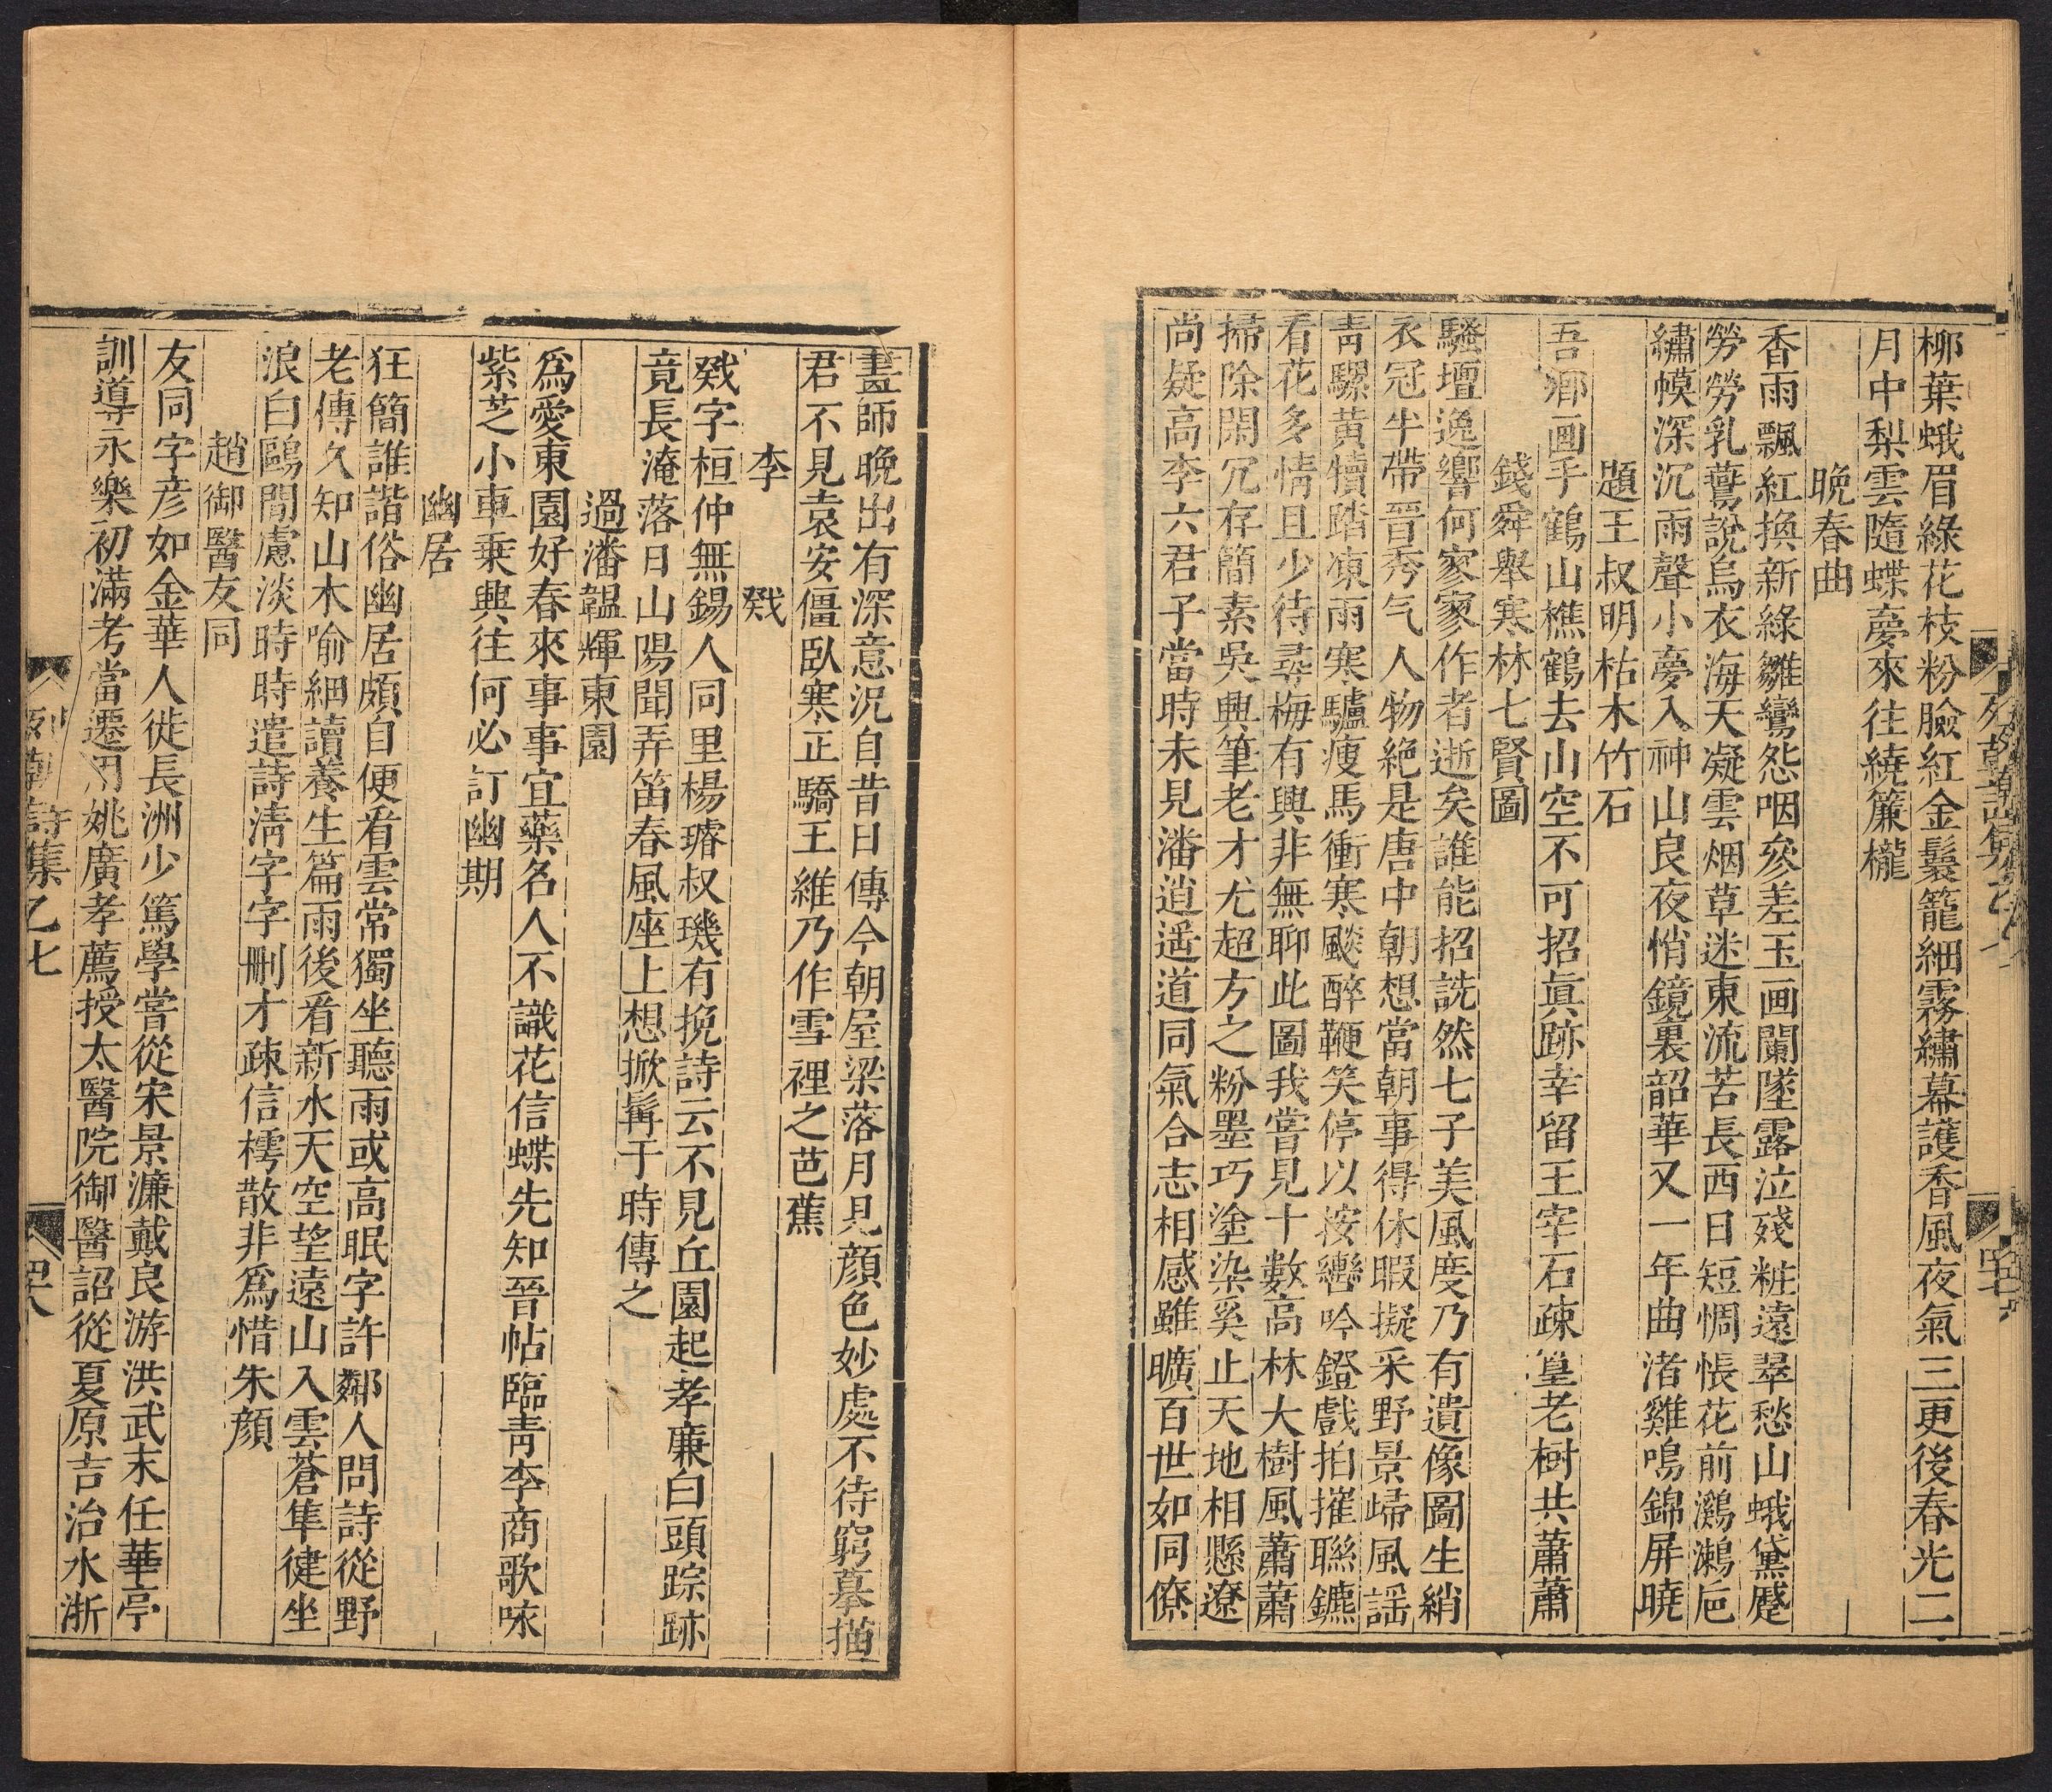 柳葉蛾眉綠花枝粉臉紅金鬟籠細霧繡幕護香風夜氣三更後春光二
月中梨雲隨蝶夢來往繞簾櫳
晚春曲
香雨飄紅換新綠雛鸞怨咽參差玉画闌墜露泣殘粧遠翠愁山蛾黛蹙
勞勞乳鷰說烏衣海天凝雲烟草迷東流苦長西日短惆悵花前鸂鶒巵
繡幙深沉雨聲小夢入神山良夜悄鏡裏韶華又一年曲渚雞鳴錦屏曉
題王叔明枯木竹石
吾鄉画手鶴山樵鶴去山空不可招眞跡幸留王宰石疎篁老树共蕭蕭
錢舜舉寒林七賢圖
騷壇逸響何寥寥作者逝矣誰能招詵然七子美風度乃有遺像圖生綃
衣冠半帶晋秀气人物絶是唐中朝想當朝事得休暇擬采野景歸風謡
青騾黄犢踏凍雨寒驢痩馬衝寒飈醉鞭笑停以按轡吟鐙戲拍摧聯鑣
看花多情且少待尋梅有興非無聊此圖我嘗見十數高林大樹風蕭蕭
掃除閑冗存簡素吳興筆老才尤超方之粉墨巧塗染奚止天地相懸遼
尚疑高李六君子當時未見潘逍遥道同氣合志相感雖曠百世如同僚
列朝詩集乙七
畫師晚出有深意况自昔日傳今朝屋梁落月見顔色妙處不待窮摹描
君不見袁安僵臥寒正驕王維乃作雪裡之芭蕉
李 戣
戣字桓仲無錫人同里楊璿叔璣有挽詩云不見丘園起孝廉白頭踪跡
竟長淹落日山陽聞弄笛春風座上想掀髯于時傳之
過潘韞輝東園
爲愛東園好春來事事宜藥名人不識花信蝶先知晉帖臨青李商歌咏
紫芝小車乗興往何必訂幽期
幽居
狂簡誰諧俗幽居頗自便看雲常獨坐聽雨或高眠字許鄰人問詩從野
老傳久知山木喻細讀養生篇雨後看新水天空望遠山入雲蒼隼健坐
浪白鷗閒慮淡時時遣詩淸字字刪才疎信樗散非爲惜朱顔
趙御醫友同
友同字彦如金華人徙長洲少篤學嘗從宋景濂戴良游洪武末任華亭
訓導永樂初滿考當遷用姚廣孝薦授太醫院御醫詔從夏原吉治水浙
列朝詩集乙七
四十八